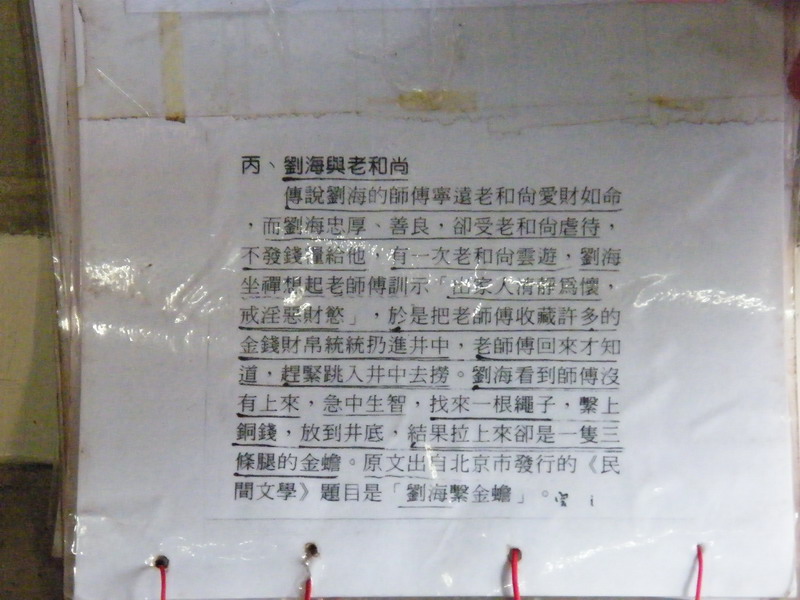 丙、劉海與老和尚
傳說劉海的師傅寧遠老和尚愛財如命
，而劉海忠厚、善良，卻受老和尚虐待，
不發錢糧給他，有一次老和尚雲遊，劉海
坐禪想起老師傅訓示「出家人清靜為懷，
戒淫惡財慾」，於是把老師傅收藏許多的
金錢財帛統統扔進井中，老師傅回來才知
道，趕緊跳入井中去撈。劉海看到師傅沒
有上來，急中生智，找來一根繩子，繫上
銅錢，放到井底，結果拉上來卻是一隻三
條腿的金蟾。原文出自北京市發行的《民
間文學》題目是「劉海繫金蟾」。